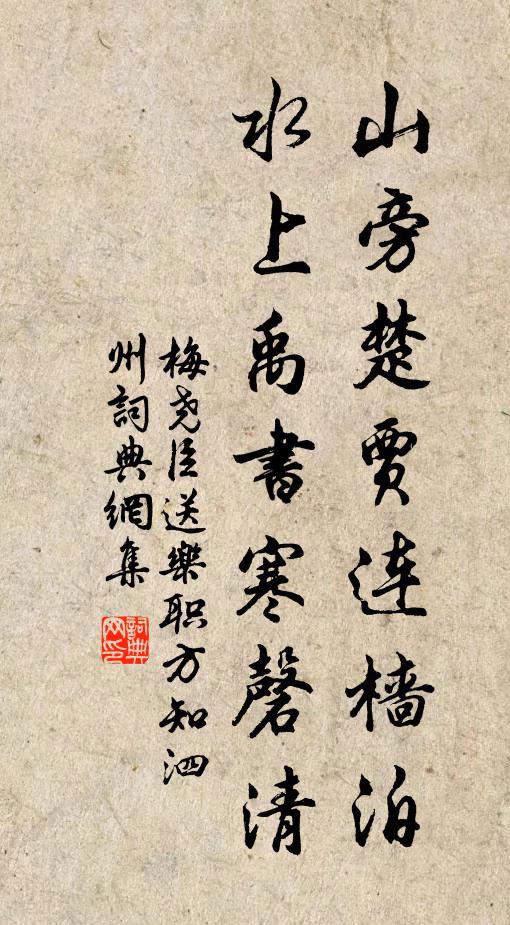 山旁楚贾连樯泊
水上禹書寒磬清
梅尧臣送樂职方知泗
州詞典網集
詞典
网印